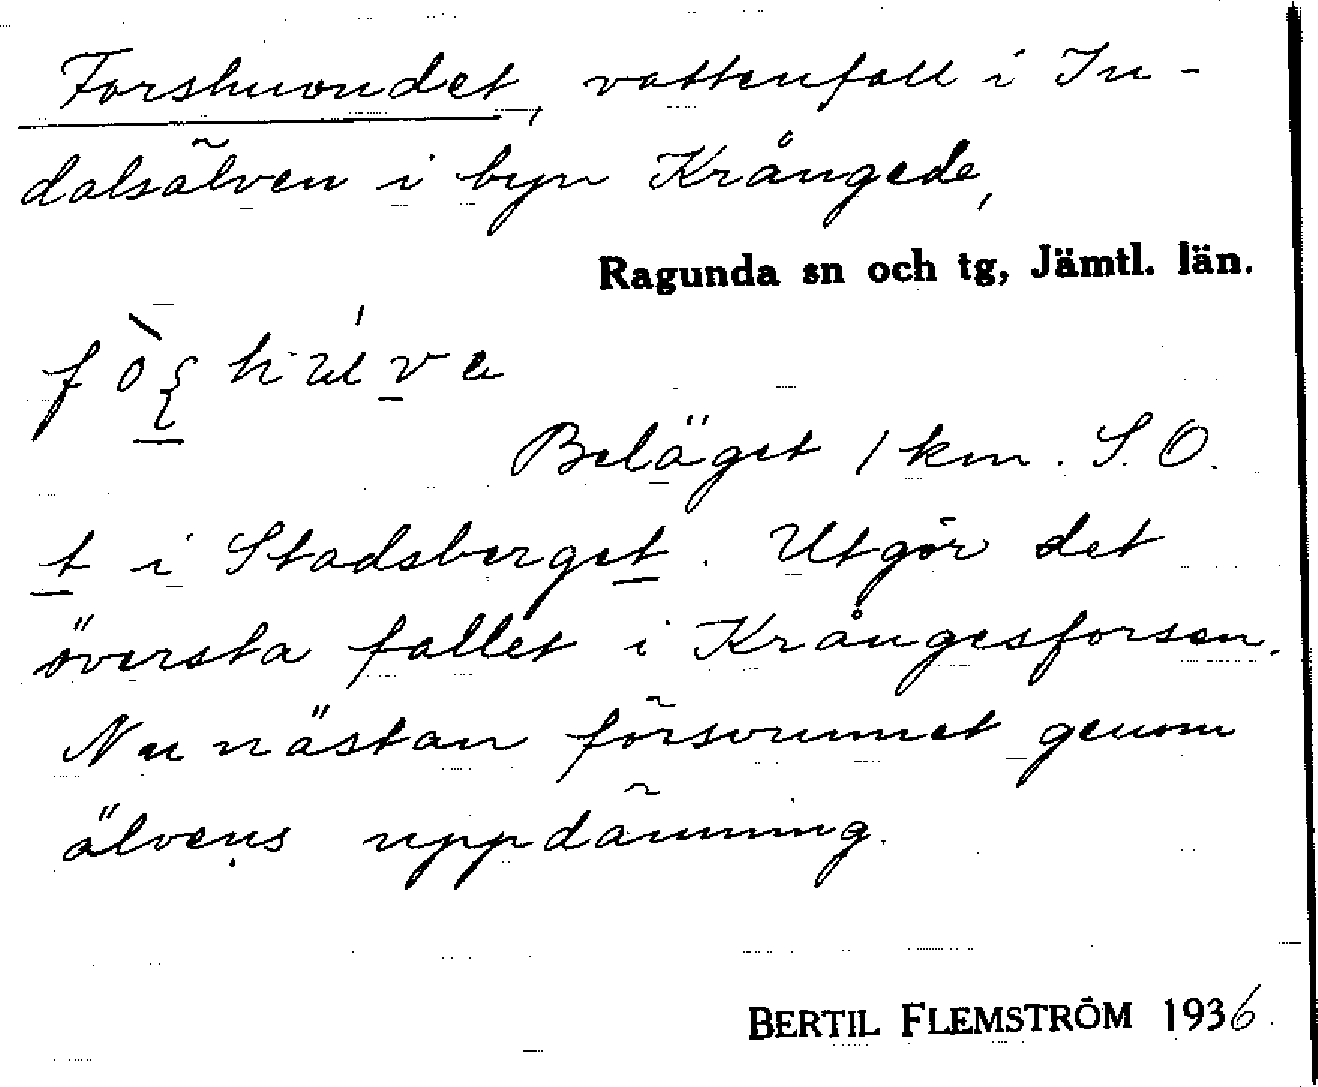 Forshuvudet, vattenfall i In-
dalsälven i byn Krångede,
Ragunda sn och tg, Jämtl. län.
Beläget 1 km. S.O.
t i Stadsberget. Utgör det
översta fallet i Krångesforsen.
Nu nästan försvunnet genom
älvens uppdämning.
BERTIL FLEMSTRÖM 1936.